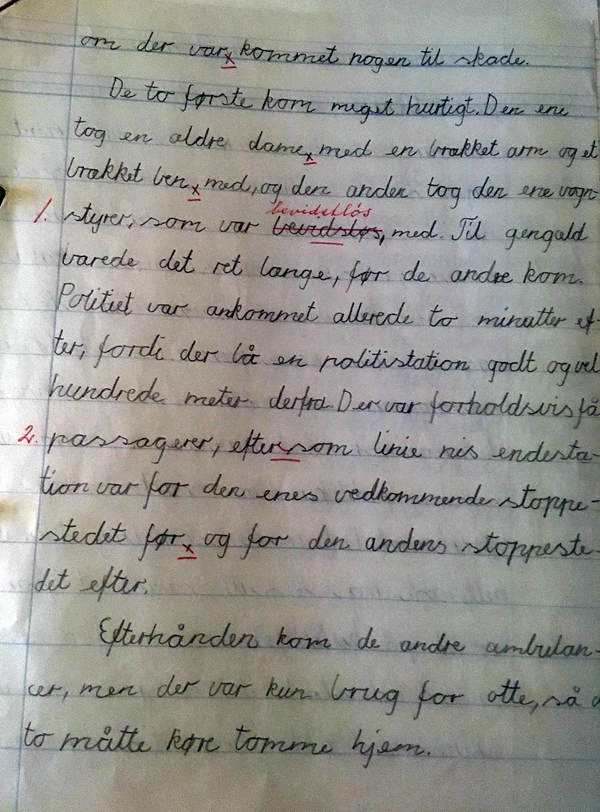 om der var x kommet nogen til skade.
De to første kom meget hurtigt. Den ene
tog en ældre dame x med en brækket arm og et
brækket ben x med, og den anden tog den ene vogn-
bevidstløs
1. styrer, som var bevidsløs, med. Til gengæld
varede det ret længe, før de andre kom.
Politiet var ankommet allerede to minutter ef-
ter, fordi der lå en politistation godt og vel
hundrede meter derfra. Der var forholdsvis få
2. passagerer, eftersom linie nis endesta-
tion var for den enes vedkommende stoppe-
stedet før x og for den andens stoppeste-
det efter.
Efterhånden kom de andre ambulan-
cer, men der var kun brug for otte, så
to måtte køre tomme hjem.